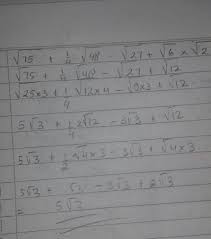 √75 + 1/4 √48 - √27 + √6 × √2
√75 + 1/4 √48 - √27 + √12
√25×3 + 1/4 √12×4 - √9×3 + √12
5√3 + 1/4 × 2√12 - 3√3 + √12
5√3 + 1/2 √4×3 - 3√3 + √4×3
5√3 + √3 - 3√3 + 2√3
= 5√3